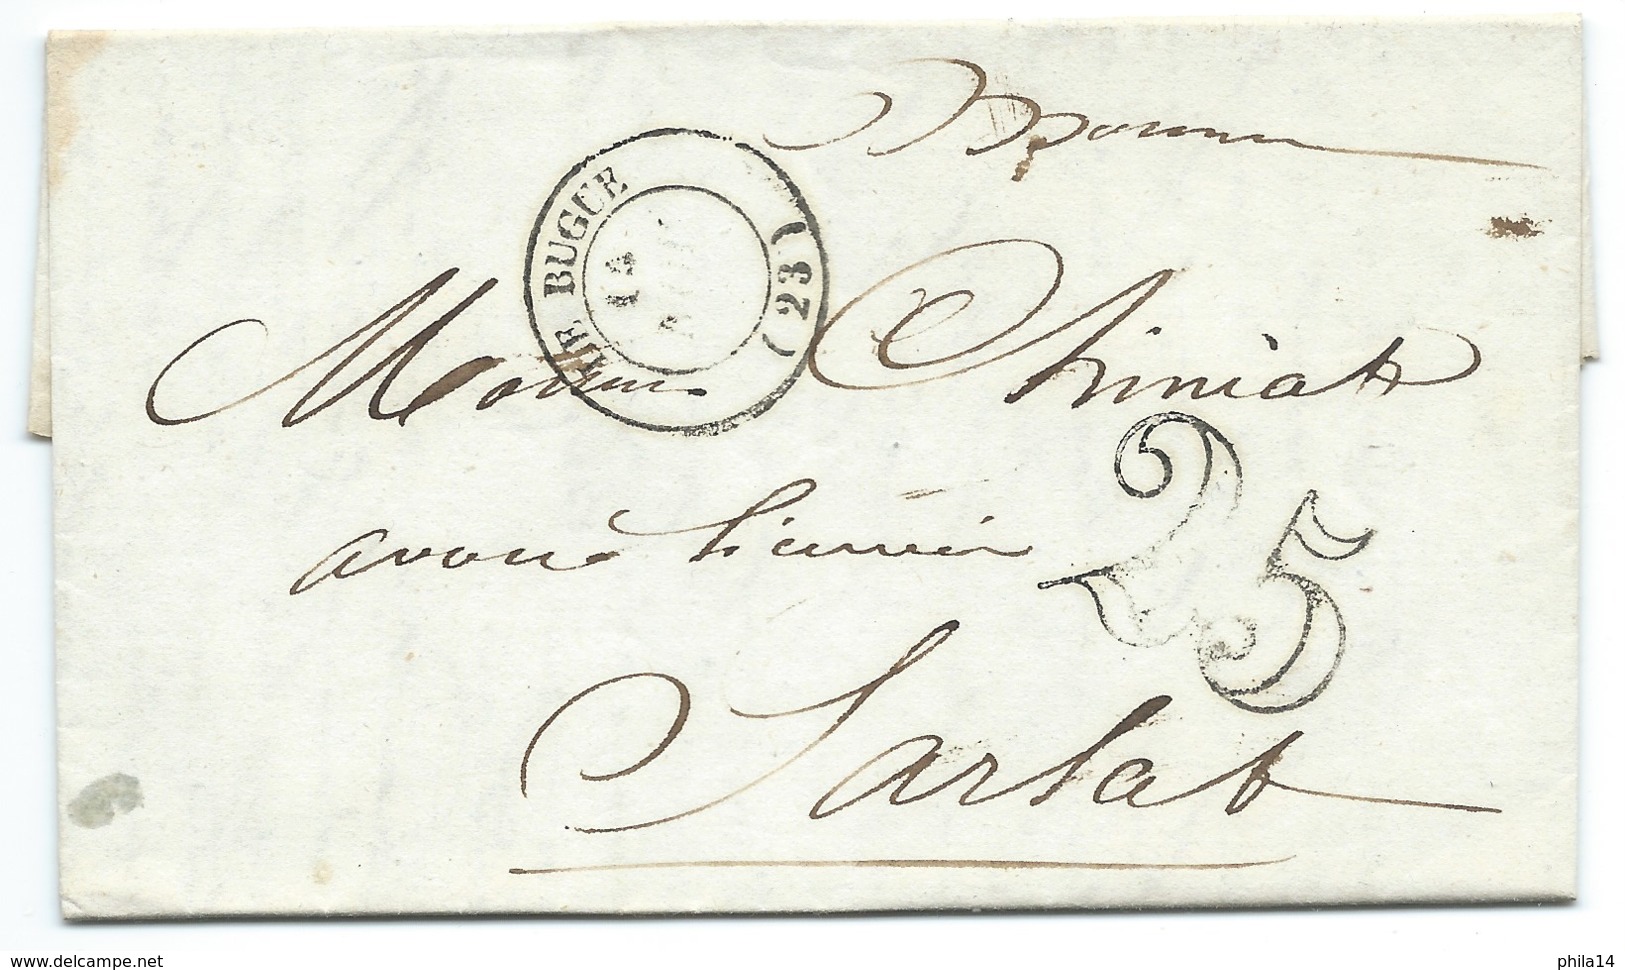 LE BUGUE
14
(23)
Monsieur
avoué licencié
25
Sarlat
www.delcampe.net
phila14